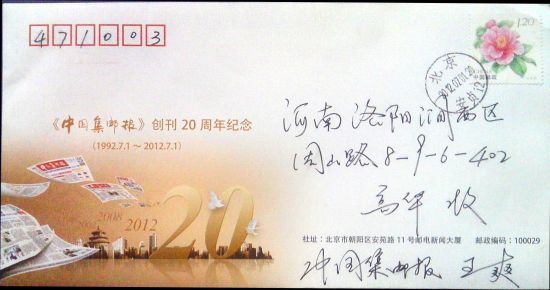 471003
1.20
中国邮政
北京
2012.07.01.20
《中国集邮报》创刊20周年纪念
(1992.7.1～2012.7.1)
河南洛阳涧西区
周山路8-9-6-402
高华 收
2008
2012
20
社址：北京市朝阳区安苑路11号邮电新闻大厦 邮政编码：100029
中国集邮报 王爽